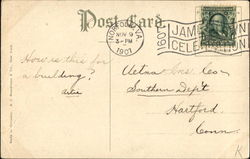 Post Card.
NORFOLK, VA.
NOV 9
3-PM
1907
1607
JAMESTOWN
CELEBRATION
How is this for
a building?
Aetna Ins. Co
Southern Dep't
Hartford
Conn.